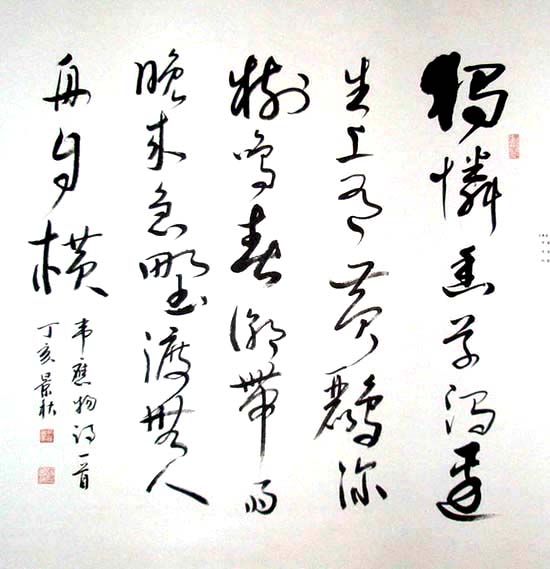 獨憐幽草澗邊
生上有黄鸝深
樹鳴春潮帶雨
晚來急野渡無人
舟自横
韦應物诗一首
丁亥景秋